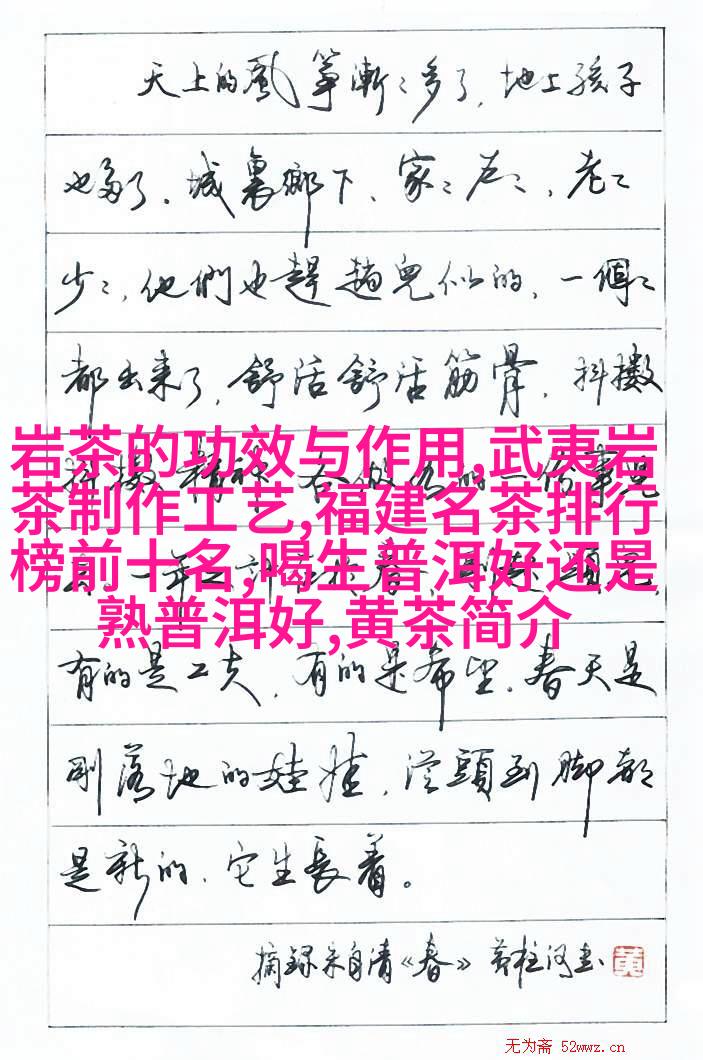 天上的風箏漸〻多了,地上孩子
也多了。城裏鄉下、家〻户〻,老〻
少〻,他們也趕趟兒似的,一個〻
都出来了,舒活舒活筋骨,抖擻
岩茶的功效与作用,武夷岩
茶制作工艺,福建名茶排行
榜前十名,喝生普洱好还是
熟普洱好,黄茶简介
有的是工夫,有的是希望。春天是
剛落地的娃娃,從頭到脚都
是新的,它生長着。
摘録朱自清《春》
黄
无为斋 52wwz.cn